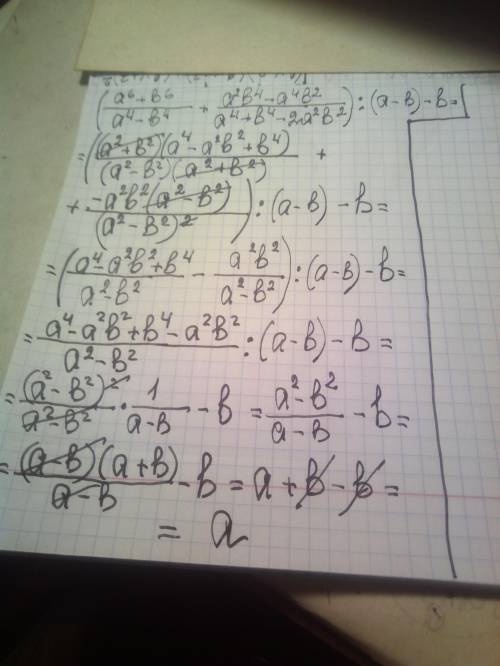 (a⁶+b⁶/a⁴-b⁴ + a²b⁴-a⁴b²/a⁴+b⁴-2a²b²):(a-b)-b=
=((a²+b²)(a⁴-a²b²+b⁴)/(a²-b²)(a²+b²) +
+ -a²b²(a²-b²)/(a²-b²)²):(a-b)-b=
=(a⁴-a²b²+b⁴/a²-b² - a²b²/a²-b²):(a-b)-b=
=a⁴-a²b²+b⁴-a²b²/a²-b²:(a-b)-b=
=(a²-b²)²/a²-b²·1/a-b-b=a²-b²/a-b-b=
=(a-b)(a+b)/a-b-b=a+b-b=
=a